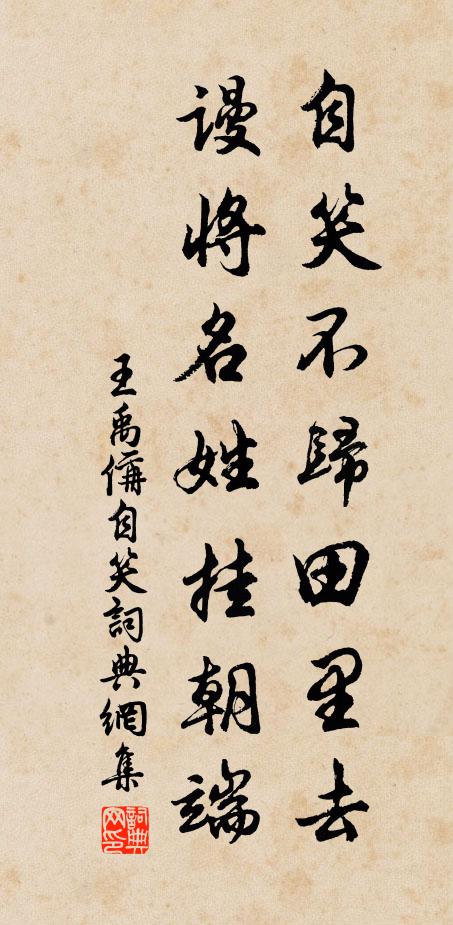 自笑不歸田里去
謾將名姓挂朝端
王禹偁自笑詞典網集
詞典网印